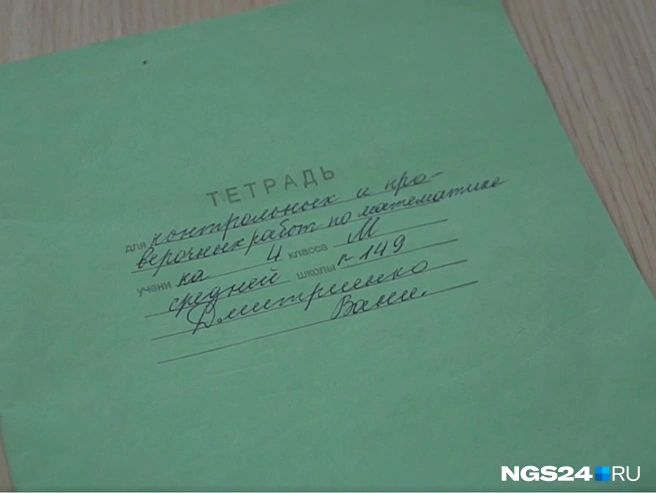 ТЕТРАДЬ
для контрольных и про-
верочных работ по математике
учени ка 4 класса М
средней школы № 149
Дмитриенко
Вани.
NGS24.RU